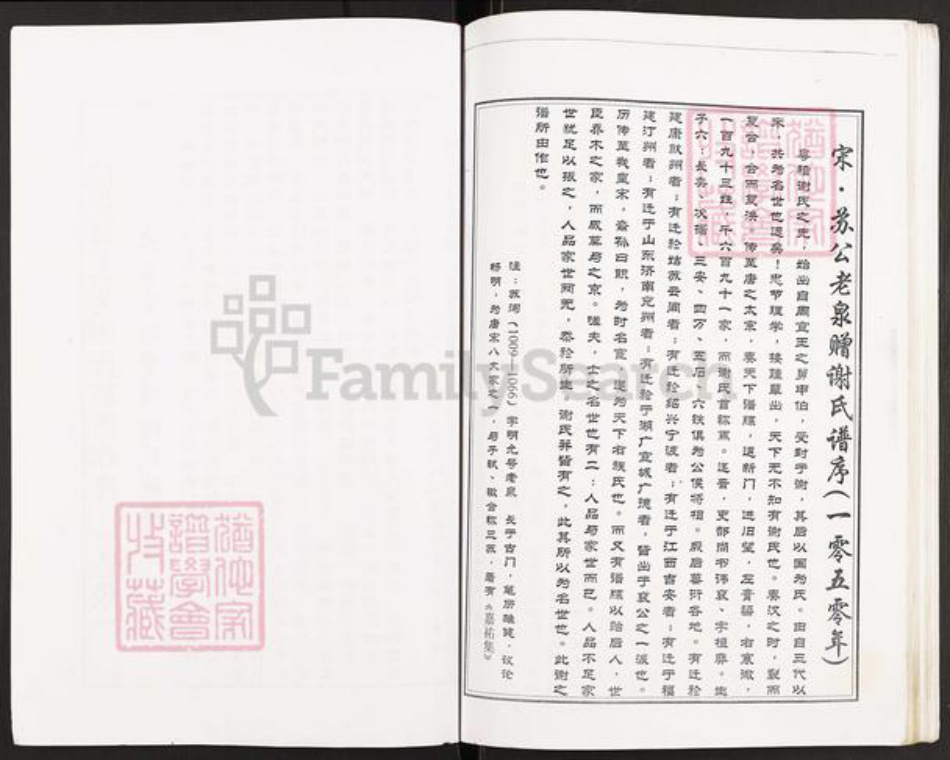 宋·苏公老泉赠谢氏谱序(一零五零年)
粤稽谢氏之先，始出自周宣王之舅申伯，受封于谢，其后以国为氏。由自三代以
宋，其为名世也远矣！忠节理学，接踵辈出，天下无不知有谢氏也。秦汉之时，裂而
复合，合而复洪，传至唐之太宗，奏天下谱牒，退新门，进旧望，左膏粱，右寒微，
一百九十三姓，千六百九十一家，而谢氏首称焉。迄晋，吏部尚书讳裒、字植舜。生
子六：长奕、次据、三安、四万、五石、六铁俱为公侯将相。厥后蕃衍各地。有迁於
建康歙州者；有迁於姑苏云间者；有迁於绍兴宁波者；有迁于江西吉安者；有迁于福
建汀州者；有迁于山东济南兖州者；有迁於于湖广宣城广德者，皆出于裒公之一派也。
历传至我皇宋，裔孙曰 ，为时名宦，遂为天下右族氏也。而又有谱牒以贻后人，世
臣乔木之家，而威莫与之京。嗟夫，士之名世也有二：人品与家世而已。人品不足家
世犹足以振之，人品家世两尧，泰於所生，谢氏并皆有之，此其所以为名世也。此谢之
谱所由作也。
注：苏洵（1009—1066）字明允号老泉 长于古门，笔势雄健，议论
畅明，为唐宋八大家之一，与子轼、辙合称三苏，着有《嘉祐集》
FamilySearch